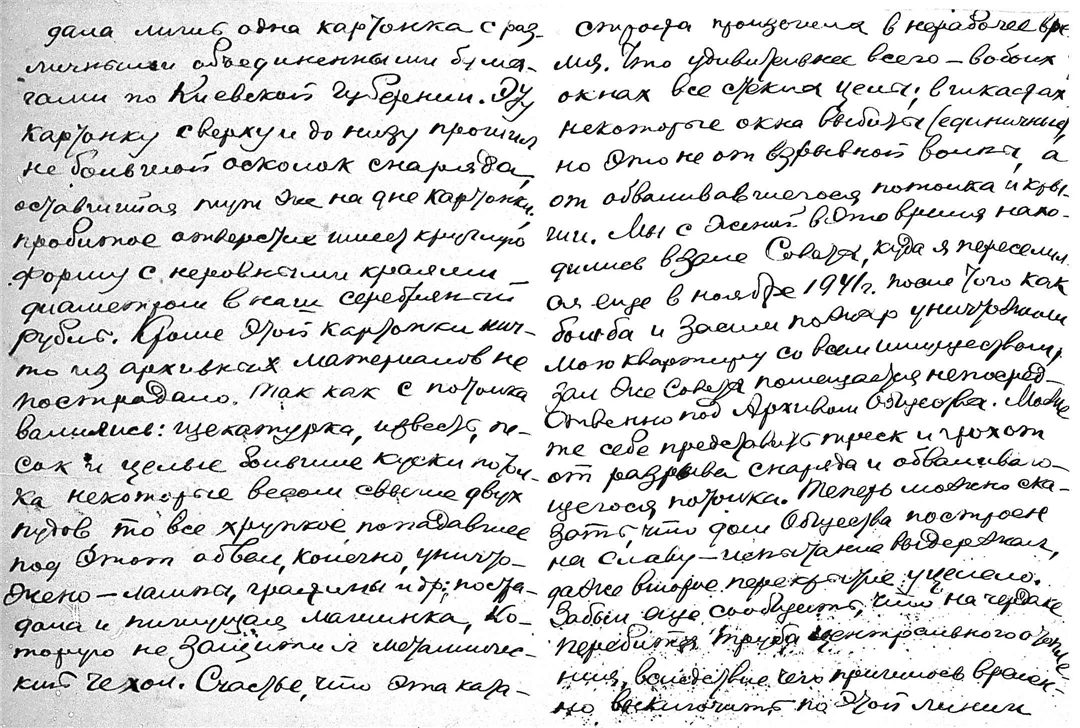 дала лишь одна картонка с раз-
личными объединенными бума-
гами по Киевской Губернии. Эту
картонку сверху и до низу прошил
небольшой осколок снаряда,
оставшийся тут же на дне картонки,
пробитое отверстие имеет круглую
форму с неровными краями
диаметром в наш серебряный
рубль. Кроме этой картонки нич-
то из архивных материалов не
пострадало. Так как с потолка
валились: щекатурка, известь, пе-
сок и целые большие куски потол-
ка некоторые весом свыше двух
пудов то все хрупкое попадавшее
под этот обвал, конечно, уничто-
жено – лампы, графины и др: постра-
дала и пишущая машинка, ко-
торую не защитил металличес-
кий чехол. Счастье, что эта ката-
строфа произошла в нерабочее вре-
мя. Что удивительнее всего – в обоих
окнах все стекла целы; в шкафах
некоторые окна выбиты (единичные),
но это не от взрывной волны, а
от обваливавшегося потолка и кры-
ши. Мы с женой в это время нахо-
дились в зале Совета, куда я переселил-
ся еще в ноябре 1941г. после того как
бомба и засим пожар уничтожили
мою квартиру со всем имуществом,
зал же Совета помещается непосред-
ственно под Архивом Общества. Може-
те себе представить треск и грохот
от разрыва снаряда и обваливаю-
щегося потолка. Теперь можно ска-
зать, что дом Общества построен
на славу – испытание выдержал,
даже второе перекрытие уцелело.
Забыл еще сообщить, что на чердаке
перебита труба центрального отопле-
ния, вследствие чего пришлось времен-
но выключить по этой линии